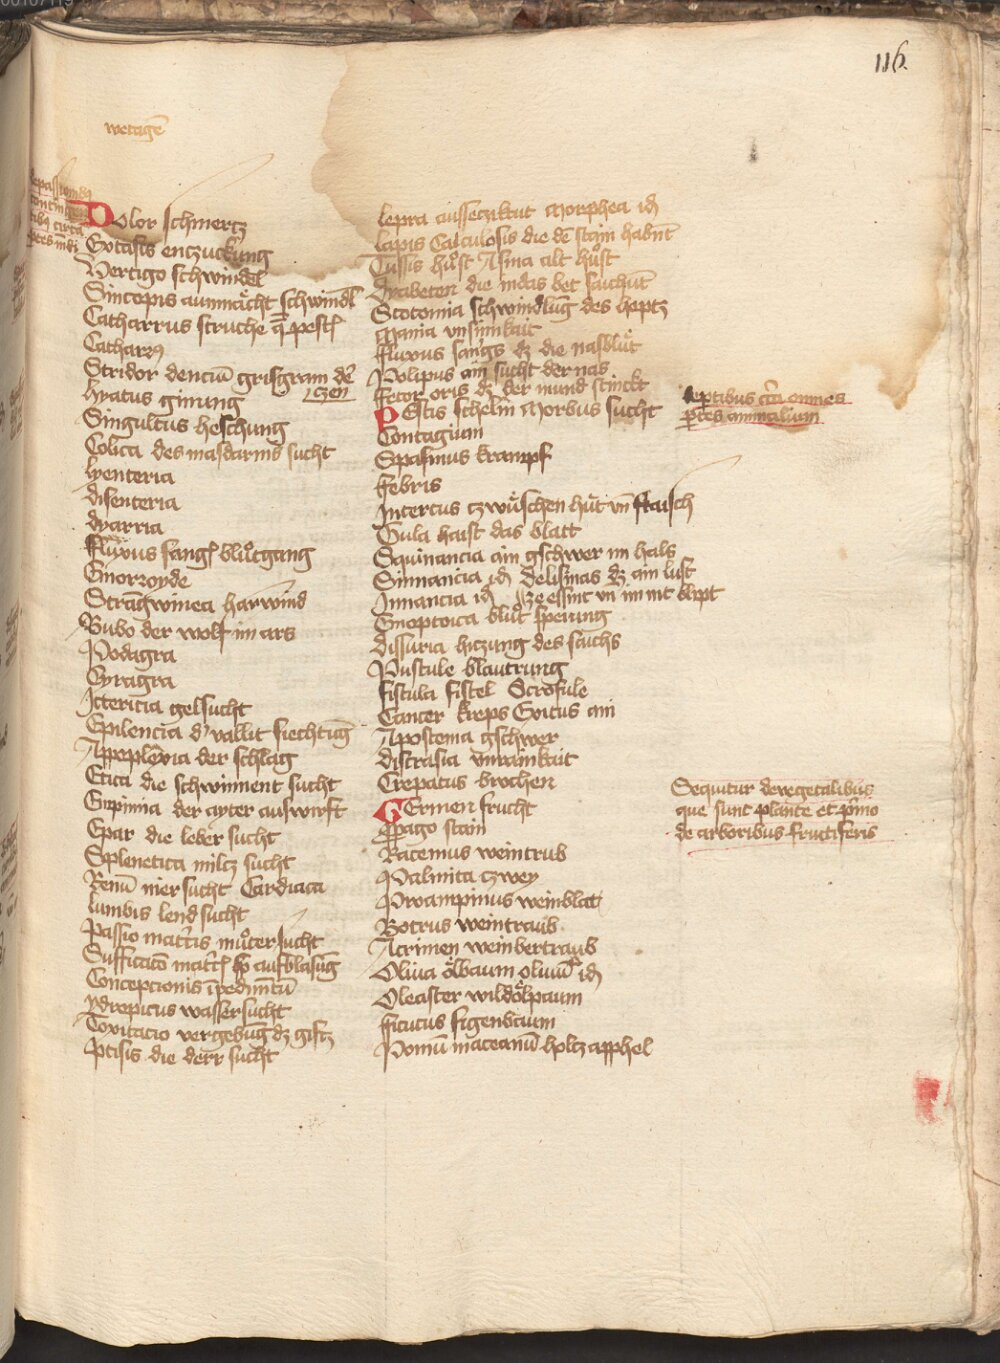 116.
wetagē
Dolor schmertz
Extasis entzuckung
Vertigo schwindel
Sincopis aummächt schwindl
Catharrus struche
Catharrus
Stridor denciū grisgram der
zen
hyatus ginung
Singultus heschung
Colica des masdarms sucht
lyenteria
disenteria
dyarria
fluxus sang blůtgang
Emorroyde
Strāgwinea harwind
Bubo der wolf im ars
Podagra
Cyragra
Ictericia gelsucht
Epilencia d' vallut siechtūg
Appoplexia der schlag
Etica die schwinnent sucht
Enpimia der ayter auswurft
Epar die leber sucht
Splenetica miltz sucht
Renū niersucht Cardiaca
lumbis lendsucht
Passio matris můtersucht
Suffocatō matr aufblasūg
Concepcionis īpedimētū
ydropicus wassersucht
Toxitacio vergebūg dz gift
Ptisis die derr sucht
lepra aussetzikait Morphea idem
lapis Calculosis die dē stain habnt
Tussis hůst Asma alt hůst
dyabeten die
Scotomia schwindlūg des
Mania vnsinnikait
fluxus sang's dz die nasblůt
Polipus ain sucht der nas
fetor oris dz der mund stinckt
Pestis schelm Morbus sucht
Contagium
Spasmus krampf
febris
Intercus tzwüschen hůt vn flaisch
Gula haist das blatt
Squinancia ain gschwer im hals
Sinnancia idem
Innancia idem
Emoptoica blůt speiung
dissuria hitzung des saichs
Pustule blautrung
fistula fistel Scrofule
Cancer kreps
Apostema gschwer
distrasia vnrainkait
Crepatus brochen
Germen frucht
ppago stain
Racemus weintrub
Palmita zwey
Procampinus weinblat
Botrus weintraub
Acrimen weinbertraub
Oliua ölbaum oliuū idem
Oleaster wildölpaum
ficutus figenbaum
Pomū maceanū holtzapphel
ptes animalium
Sequitur de vegetalibus
que sunt plante et pimo
de arboribus fructiferis